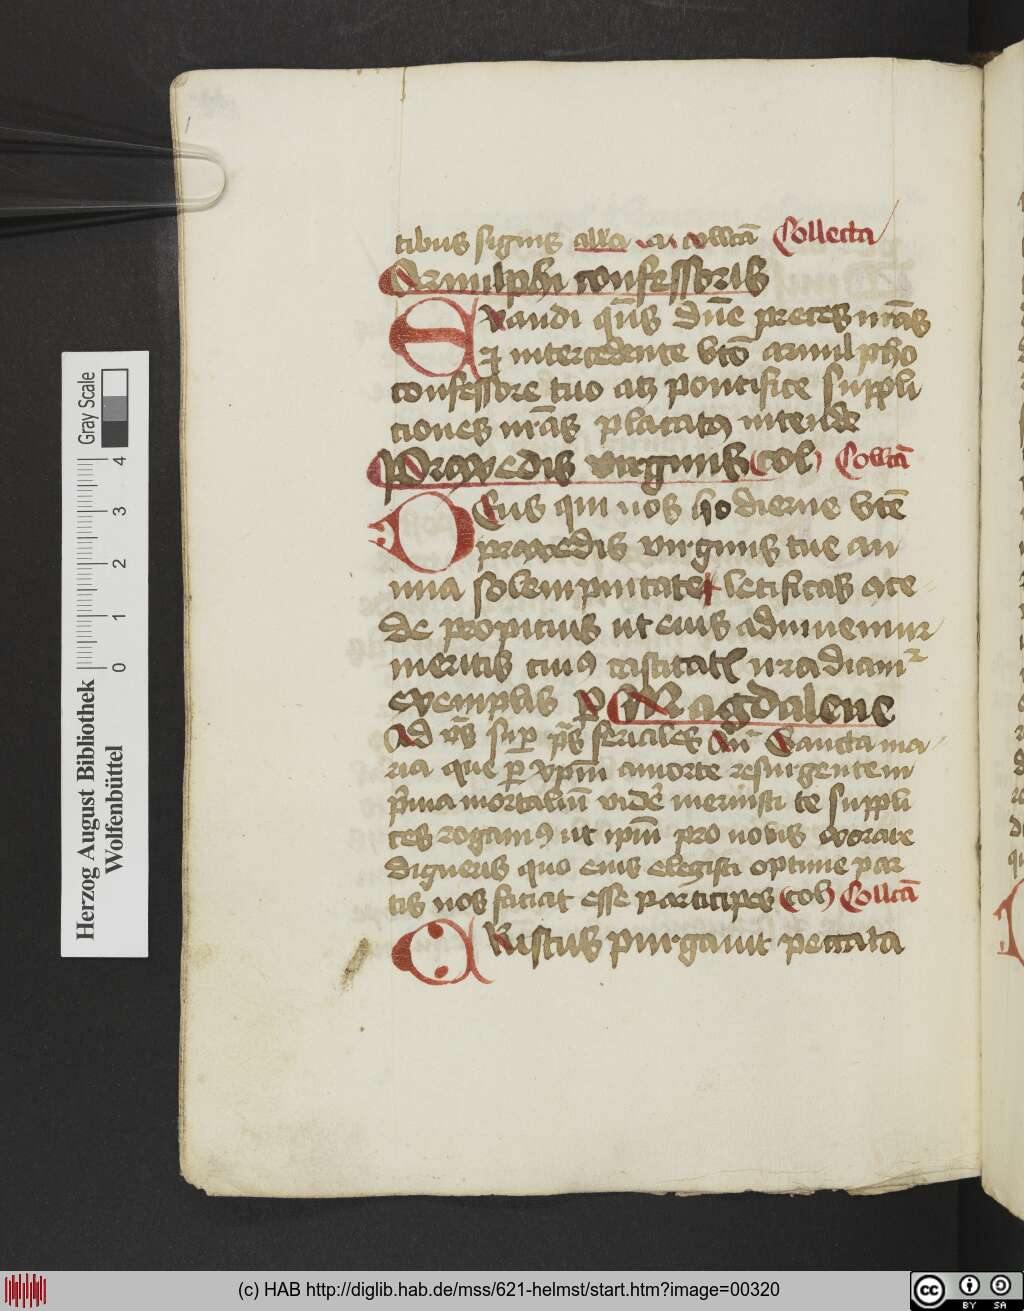 tibus signis alla Collecta
Arnulphi confessoris
Exaudi qūs dn̄e preces nr̄as
et intercedente bt̄o arnulpho
confessore tuo atqꝫ pontifice suppli
ciones nr̄as placatꝰ intende
Praxedis virginis Col) Collcta
Deus qui nos hodierne bt̄e
praxedis virginis tue an
nua solempnitate letificas ✝ce
de propicius ut eius adiuuemur
meritis cuiꝰ castitatis irradiamur
exemplis ꝑ Magdalene
Ad vs̄ sup ps̄ feriales An̄ Sancta ma
ria que ꝑ xpm̄ a morte resurgentem
prima mortaliū videre meruisti te suppli
ces rogamꝰ ut ipm̄ pro nobis exorare
digneris quo cuius elegisti optime par
tis nos faciat esse participes Col) Collcā
Christus purgauit peccata
Herzog August Bibliothek
Wolfenbüttel
Gray Scale
0 1 2 3 4
(c) HAB http://diglib.hab.de/mss/621-helmst/start.htm?image=00320
cc BY SA